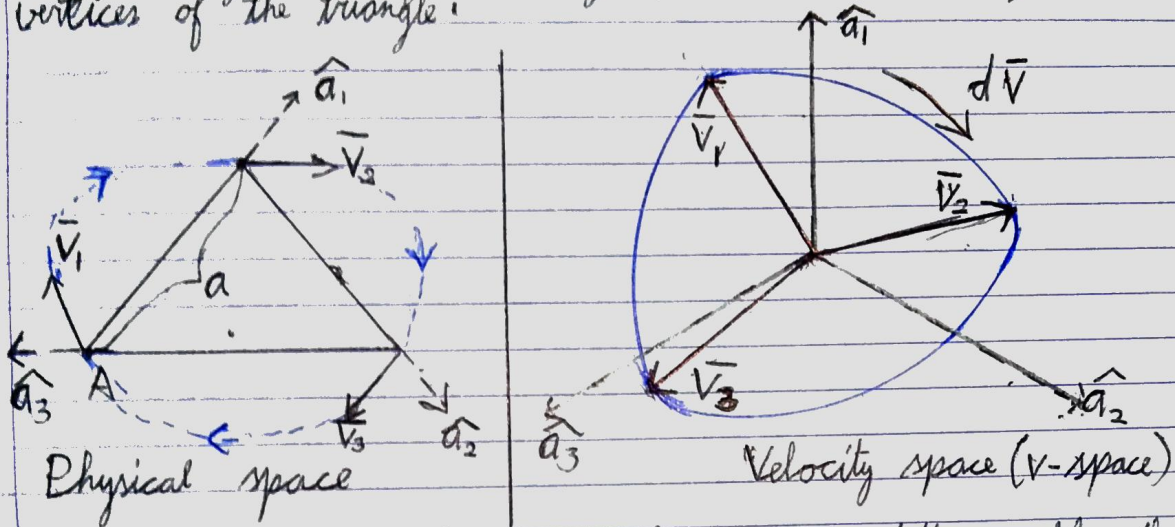 vertices of the triangle.
â₁
V̄₂
V̄₁
a
â₃
A
V̄₃
â₂
Physical space
â₁
dV̄
V̄₁
V̄₂
V̄₃
â₃
â₂
Velocity space (v-space)